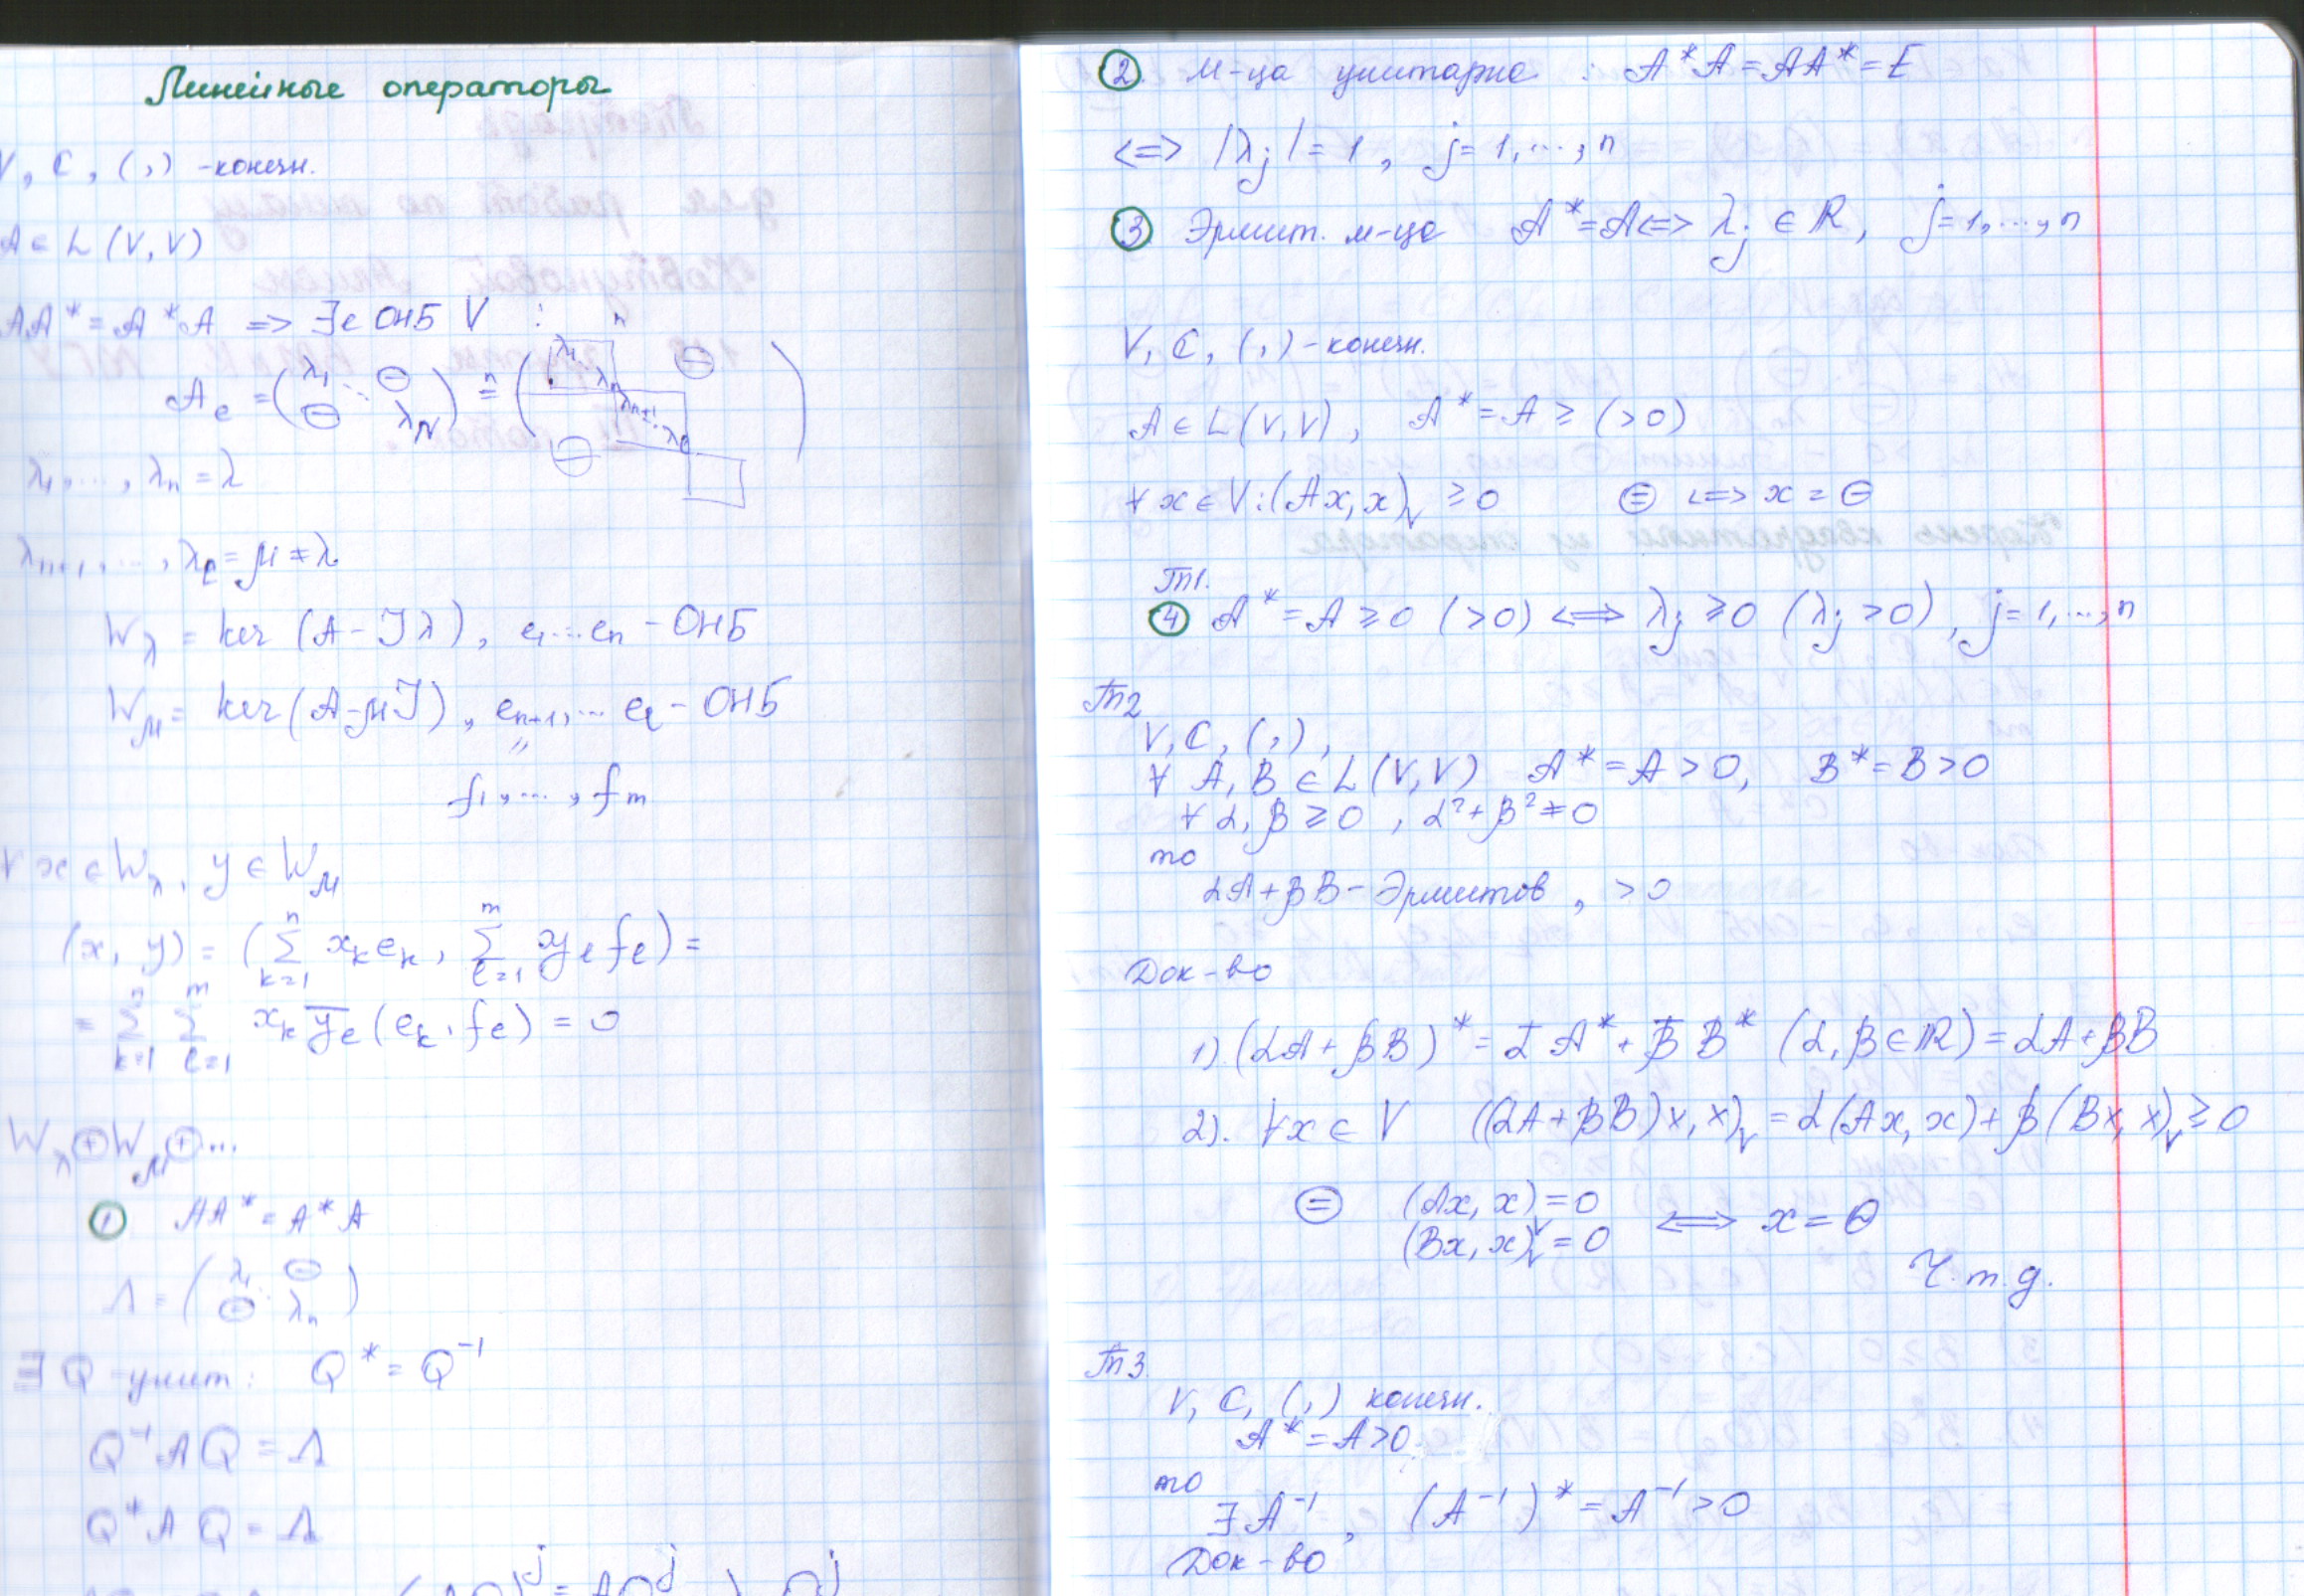 Линейные операторы
V, C, (,) - конечн.
A ∈ L (V, V)
AA* = A*A => ∃ e ОНБ V :
A_e = (λ₁ ... Θ Θ λ_N) = (λ₁ λ_n λ_{n+1} λ_l Θ Θ)
λ₁, ..., λ_n = λ
λ_{n+1}, ..., λ_l = μ ≠ λ
W_λ = ker (A - Iλ), e₁...e_n - ОНБ
W_μ = ker (A - μI), e_{n+1}, ... e_l - ОНБ
f₁, ..., f_m
∀ x ∈ W_λ, y ∈ W_μ
(x, y) = (Σ_{k=1}^{n} x_k e_k, Σ_{l=1}^{m} y_l f_l) =
= Σ_{k=1}^{n} Σ_{l=1}^{m} x_k y̅_l (e_k, f_l) = 0
W_λ ⊕ W_μ ⊕ ...
① AA* = A*A
Λ = (λ₁ Θ Θ λ_n)
∃ Q - унит: Q* = Q⁻¹
Q⁻¹AQ = Λ
Q*AQ = Λ
② М-ца унитарна : A*A = AA* = E
<=> |λ_j| = 1, j = 1, ..., n
③ Эрмит. м-ца A* = A <=> λ_j ∈ R, j = 1, ..., n
V, C, (,) - конечн.
A ∈ L (V, V), A* = A ≥ (>0)
∀ x ∈ V : (Ax, x)_V ≥ 0 ⊜ <=> x = Θ
Тп1.
④ A* = A ≥ 0 (>0) <=> λ_j ≥ 0 (λ_j > 0), j = 1, ..., n
Тп2
V, C, (,),
∀ A, B ∈ L (V, V) A* = A > 0, B* = B > 0
∀ α, β ≥ 0, α² + β² ≠ 0
то
αA + βB - Эрмитов, > 0
Док-во
1). (αA + βB)* = α̅ A* + β̅ B* (α, β ∈ R) = αA + βB
2). ∀ x ∈ V ((αA + βB) x, x)_V = α (Ax, x) + β (Bx, x)_V ≥ 0
⊜ (Ax, x)_V = 0
(Bx, x)_V = 0 <=> x = Θ
Ч.т.д.
Тп3.
V, C, (,) конечн.
A* = A > 0
то
∃ A⁻¹, (A⁻¹)* = A⁻¹ > 0
Док-во